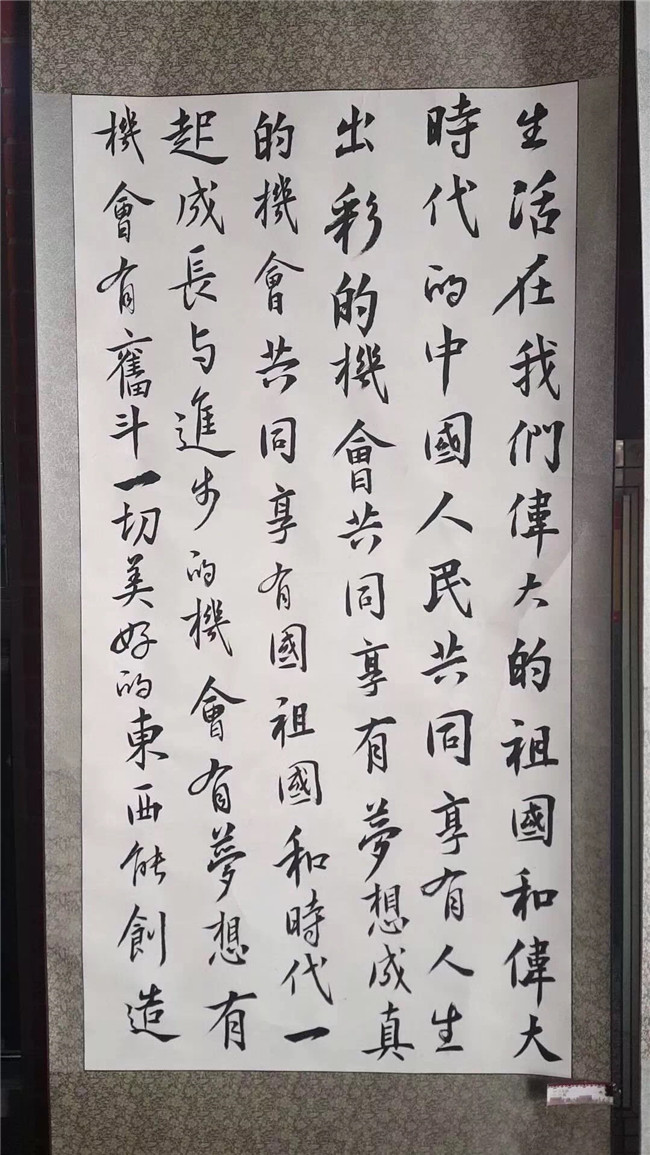 生活在我們偉大的祖國和偉大
時代的中國人民共同享有人生
出彩的機會共同享有夢想成真
的機會共同享有國祖國和時代一
起成長与進步的機會有夢想有
機會有奮斗一切美好的東西能創造